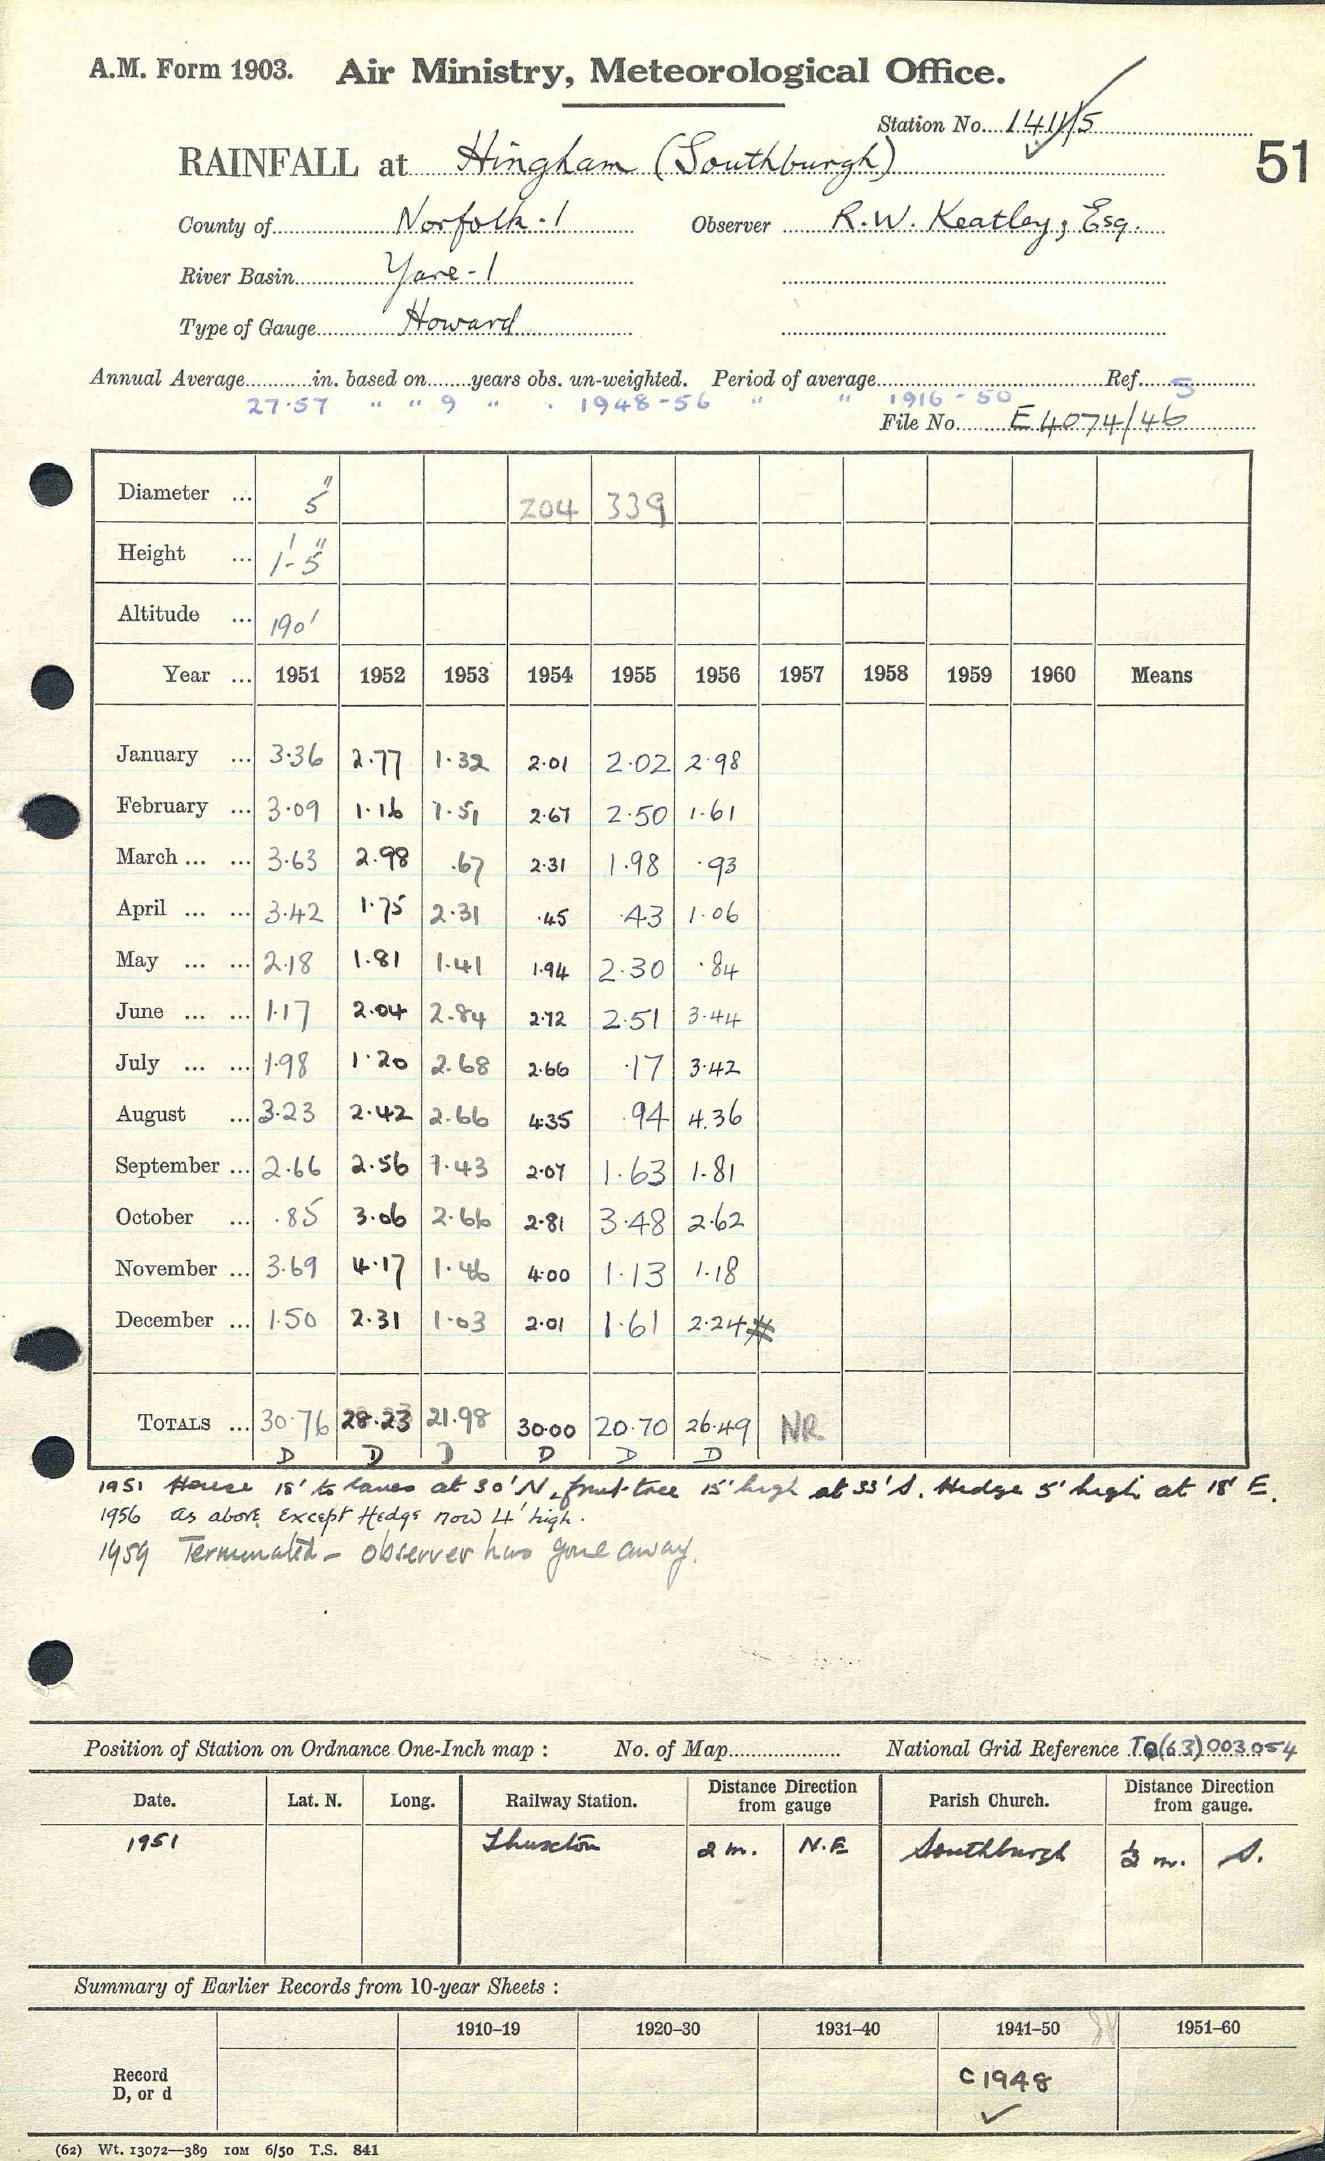 A.M. Form 1903. Air Ministry, Meteorological Office.
Station No. 1411/5
RAINFALL at Hingham (Southburgh)
51
County of Norfolk - 1 Observer R.W. Keatley, Esq.
River Basin Yare - 1
Type of Gauge Howard
Annual Average in. based on years obs. un-weighted. Period of average Ref. 5
27.57 " " 9 " " 1948-56 " " 1916-50
File No. E4074/46
Diameter ... 5" 204 339
Height ... 1'-5"
Altitude ... 190'
Year ... 1951 1952 1953 1954 1955 1956 1957 1958 1959 1960 Means
January ... 3.36 2.77 1.32 2.01 2.02 2.98
February ... 3.09 1.16 1.51 2.67 2.50 1.61
March ... ... 3.63 2.98 .67 2.31 1.98 .93
April ... ... 3.42 1.75 2.31 .45 .43 1.06
May ... ... 2.18 1.81 1.41 1.94 2.30 .84
June ... ... 1.17 2.04 2.84 2.72 2.51 3.44
July ... ... 1.98 1.20 2.68 2.66 .17 3.42
August ... 3.23 2.42 2.66 4.35 .94 4.36
September ... 2.66 2.56 1.43 2.07 1.63 1.81
October ... .85 3.06 2.66 2.81 3.48 2.62
November ... 3.69 4.17 1.46 4.00 1.13 1.18
December ... 1.50 2.31 1.03 2.01 1.61 2.24 #
TOTALS ... 30.76 28.23 21.98 30.00 20.70 26.49 NR
D D D D D D
1951 House 18' to eaves at 30' N, fruit-tree 15' high at 33' S. Hedge 5' high at 18' E.
1956 As above, except Hedge now 4' high.
1959 Terminated - observer has gone away.
Position of Station on Ordnance One-Inch map : No. of Map National Grid Reference TG(63)003054
Date. Lat. N. Long. Railway Station. Distance Direction from gauge Parish Church. Distance Direction from gauge.
1951 Thuxton 2 m. N.E Southburgh ½ m. S.
Summary of Earlier Records from 10-year Sheets :
1910–19 1920–30 1931–40 1941–50 1951–60
Record
D, or d
C 1948
(62) Wt. 13072—389 10M 6/50 T.S. 841